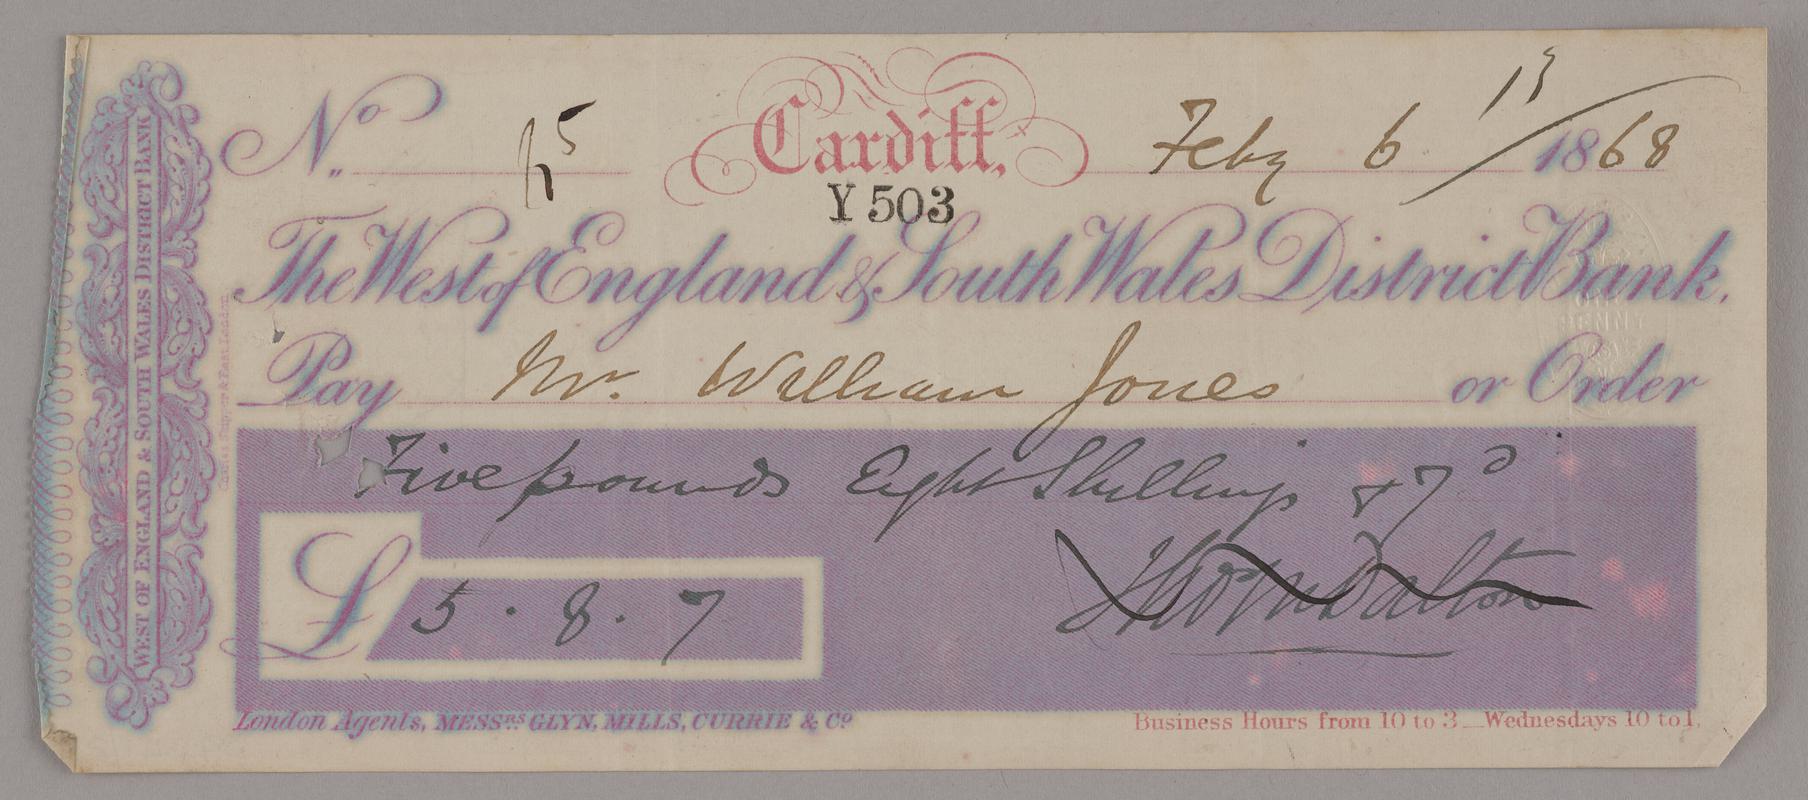 No. 
Cardiff, Feby 6 1868
13
Y 503
The West of England & South Wales District Bank.
Pay Mr. William Jones or Order
Five pounds Eight Shillings & 7d
£ 5 . 8 . 7
Dalton
London Agents, MESSRS GLYN, MILLS, CURRIE & Co
Business Hours from 10 to 3 _ Wednesdays 10 to 1.
WEST OF ENGLAND & SOUTH WALES DISTRICT BANK
PENNY